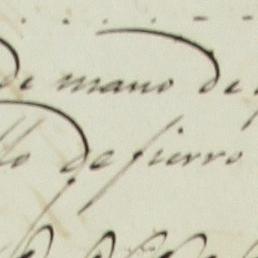 de mano de
llo de fierro